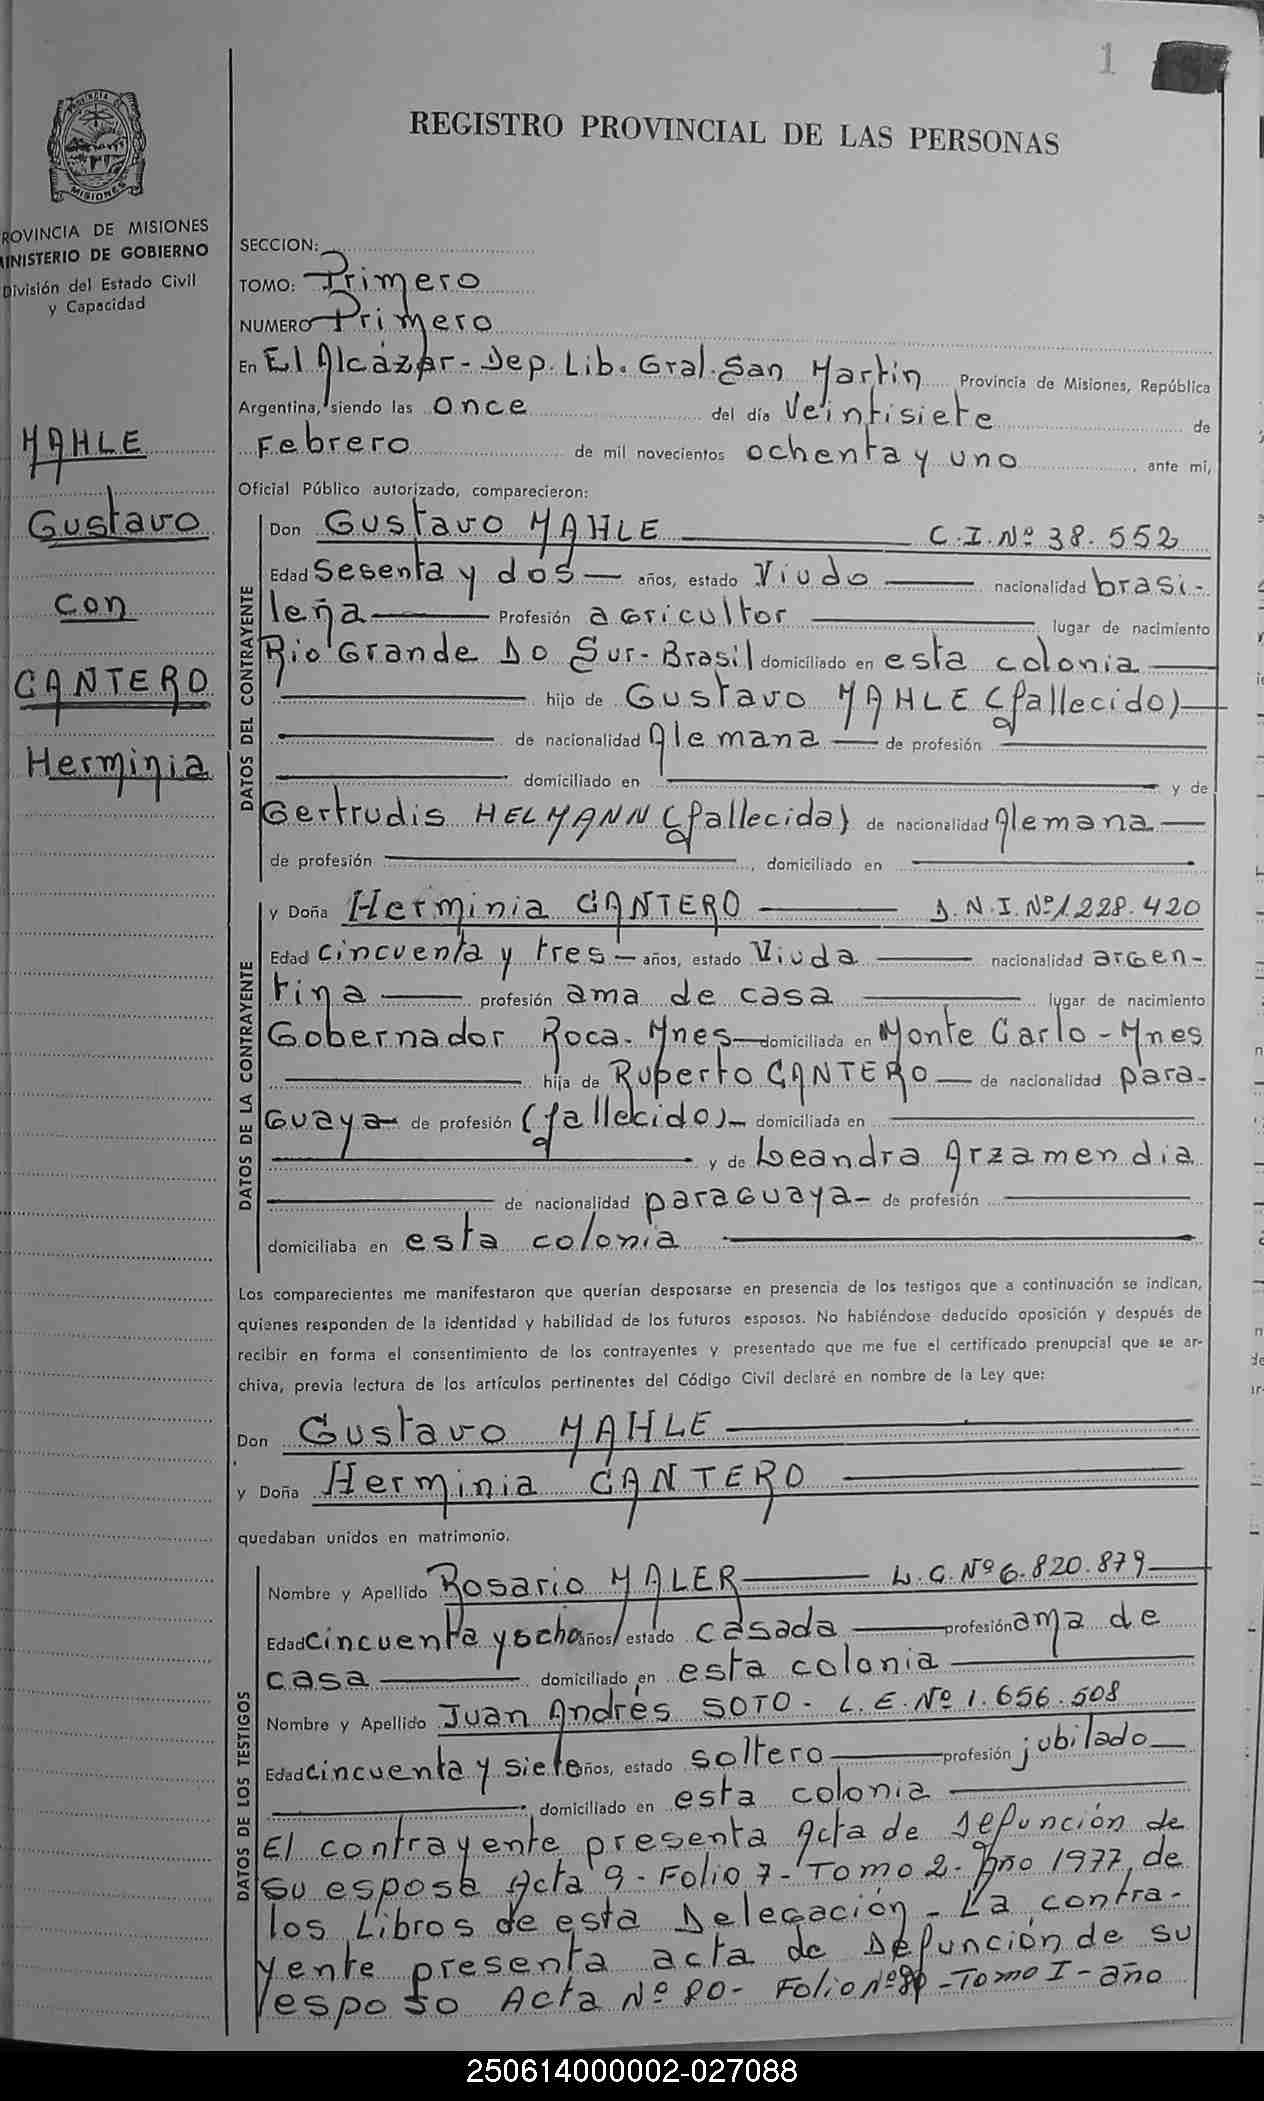 1
REGISTRO PROVINCIAL DE LAS PERSONAS
PROVINCIA DE
MISIONES
ROVINCIA DE MISIONES
INISTERIO DE GOBIERNO
División del Estado Civil
y Capacidad
MAHLE
Gustavo
con
CANTERO
Herminia
SECCION:
TOMO: Primero
NUMERO Primero
En El Alcázar - Dep. Lib. Gral. San Martin Provincia de Misiones, República
Argentina, siendo las once del día Veintisiete de
Febrero de mil novecientos ochenta y uno, ante mi,
Oficial Público autorizado, comparecieron:
DATOS DEL CONTRAYENTE
Don Gustavo MAHLE C.I. Nº 38.552
Edad Sesenta y dos años, estado Viudo nacionalidad brasi-
leña Profesión agricultor lugar de nacimiento
Rio Grande Do Sur - Brasil domiciliado en esta colonia
hijo de Gustavo MAHLE (fallecido)
de nacionalidad Alemana de profesión
domiciliado en y de
Gertrudis HELMANN (fallecida) de nacionalidad Alemana
de profesión, domiciliado en
DATOS DE LA CONTRAYENTE
y Doña Herminia CANTERO D.N.I. Nº 1.228.420
Edad cincuenta y tres años, estado Viuda nacionalidad argen-
tina profesión ama de casa lugar de nacimiento
Gobernador Roca - Mnes domiciliada en Monte Carlo - Mnes
hija de Ruperto CANTERO de nacionalidad para-
guaya de profesión (fallecido) domiciliada en
y de Leandra Arzamendia
de nacionalidad paraguaya de profesión
domiciliaba en esta colonia
Los comparecientes me manifestaron que querían desposarse en presencia de los testigos que a continuación se indican,
quienes responden de la identidad y habilidad de los futuros esposos. No habiéndose deducido oposición y después de
recibir en forma el consentimiento de los contrayentes y presentado que me fue el certificado prenupcial que se ar-
chiva, previa lectura de los artículos pertinentes del Código Civil declaré en nombre de la Ley que:
Don Gustavo MAHLE
y Doña Herminia CANTERO
quedaban unidos en matrimonio.
DATOS DE LOS TESTIGOS
Nombre y Apellido Rosario MALER L.C. Nº 6.820.879
Edad cincuenta y ocho años, estado casada profesión ama de
casa domiciliado en esta colonia
Nombre y Apellido Juan Andrés SOTO - L.E. Nº 1.656.508
Edad cincuenta y siete años, estado soltero profesión jubilado
, domiciliado en esta colonia
El contrayente presenta Acta de Defunción de
su esposa Acta 9 - Folio 7 - Tomo 2 - Año 1977, de
los Libros de esta Delegación - La contra-
yente presenta acta de Defunción de su
esposo Acta Nº 80 - Folio Nº 80 - Tomo I - año
250614000002-027088